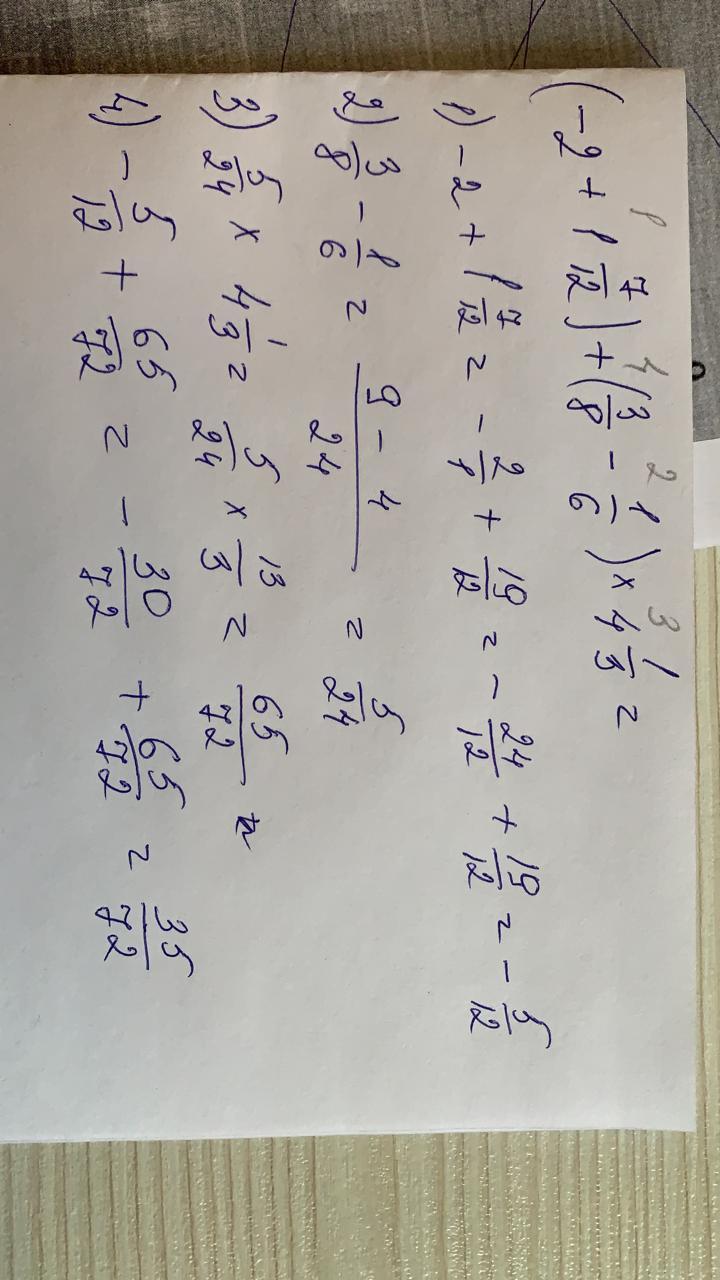 (-2 + 1 7/12) + (3/8 - 1/6) × 4 1/3 =
1) -2 + 1 7/12 = -2/1 + 19/12 = -24/12 + 19/12 = -5/12
2) 3/8 - 1/6 = 9-4/24 = 5/24
3) 5/24 × 4 1/3 = 5/24 × 13/3 = 65/72
4) -5/12 + 65/72 = -30/72 + 65/72 = 35/72